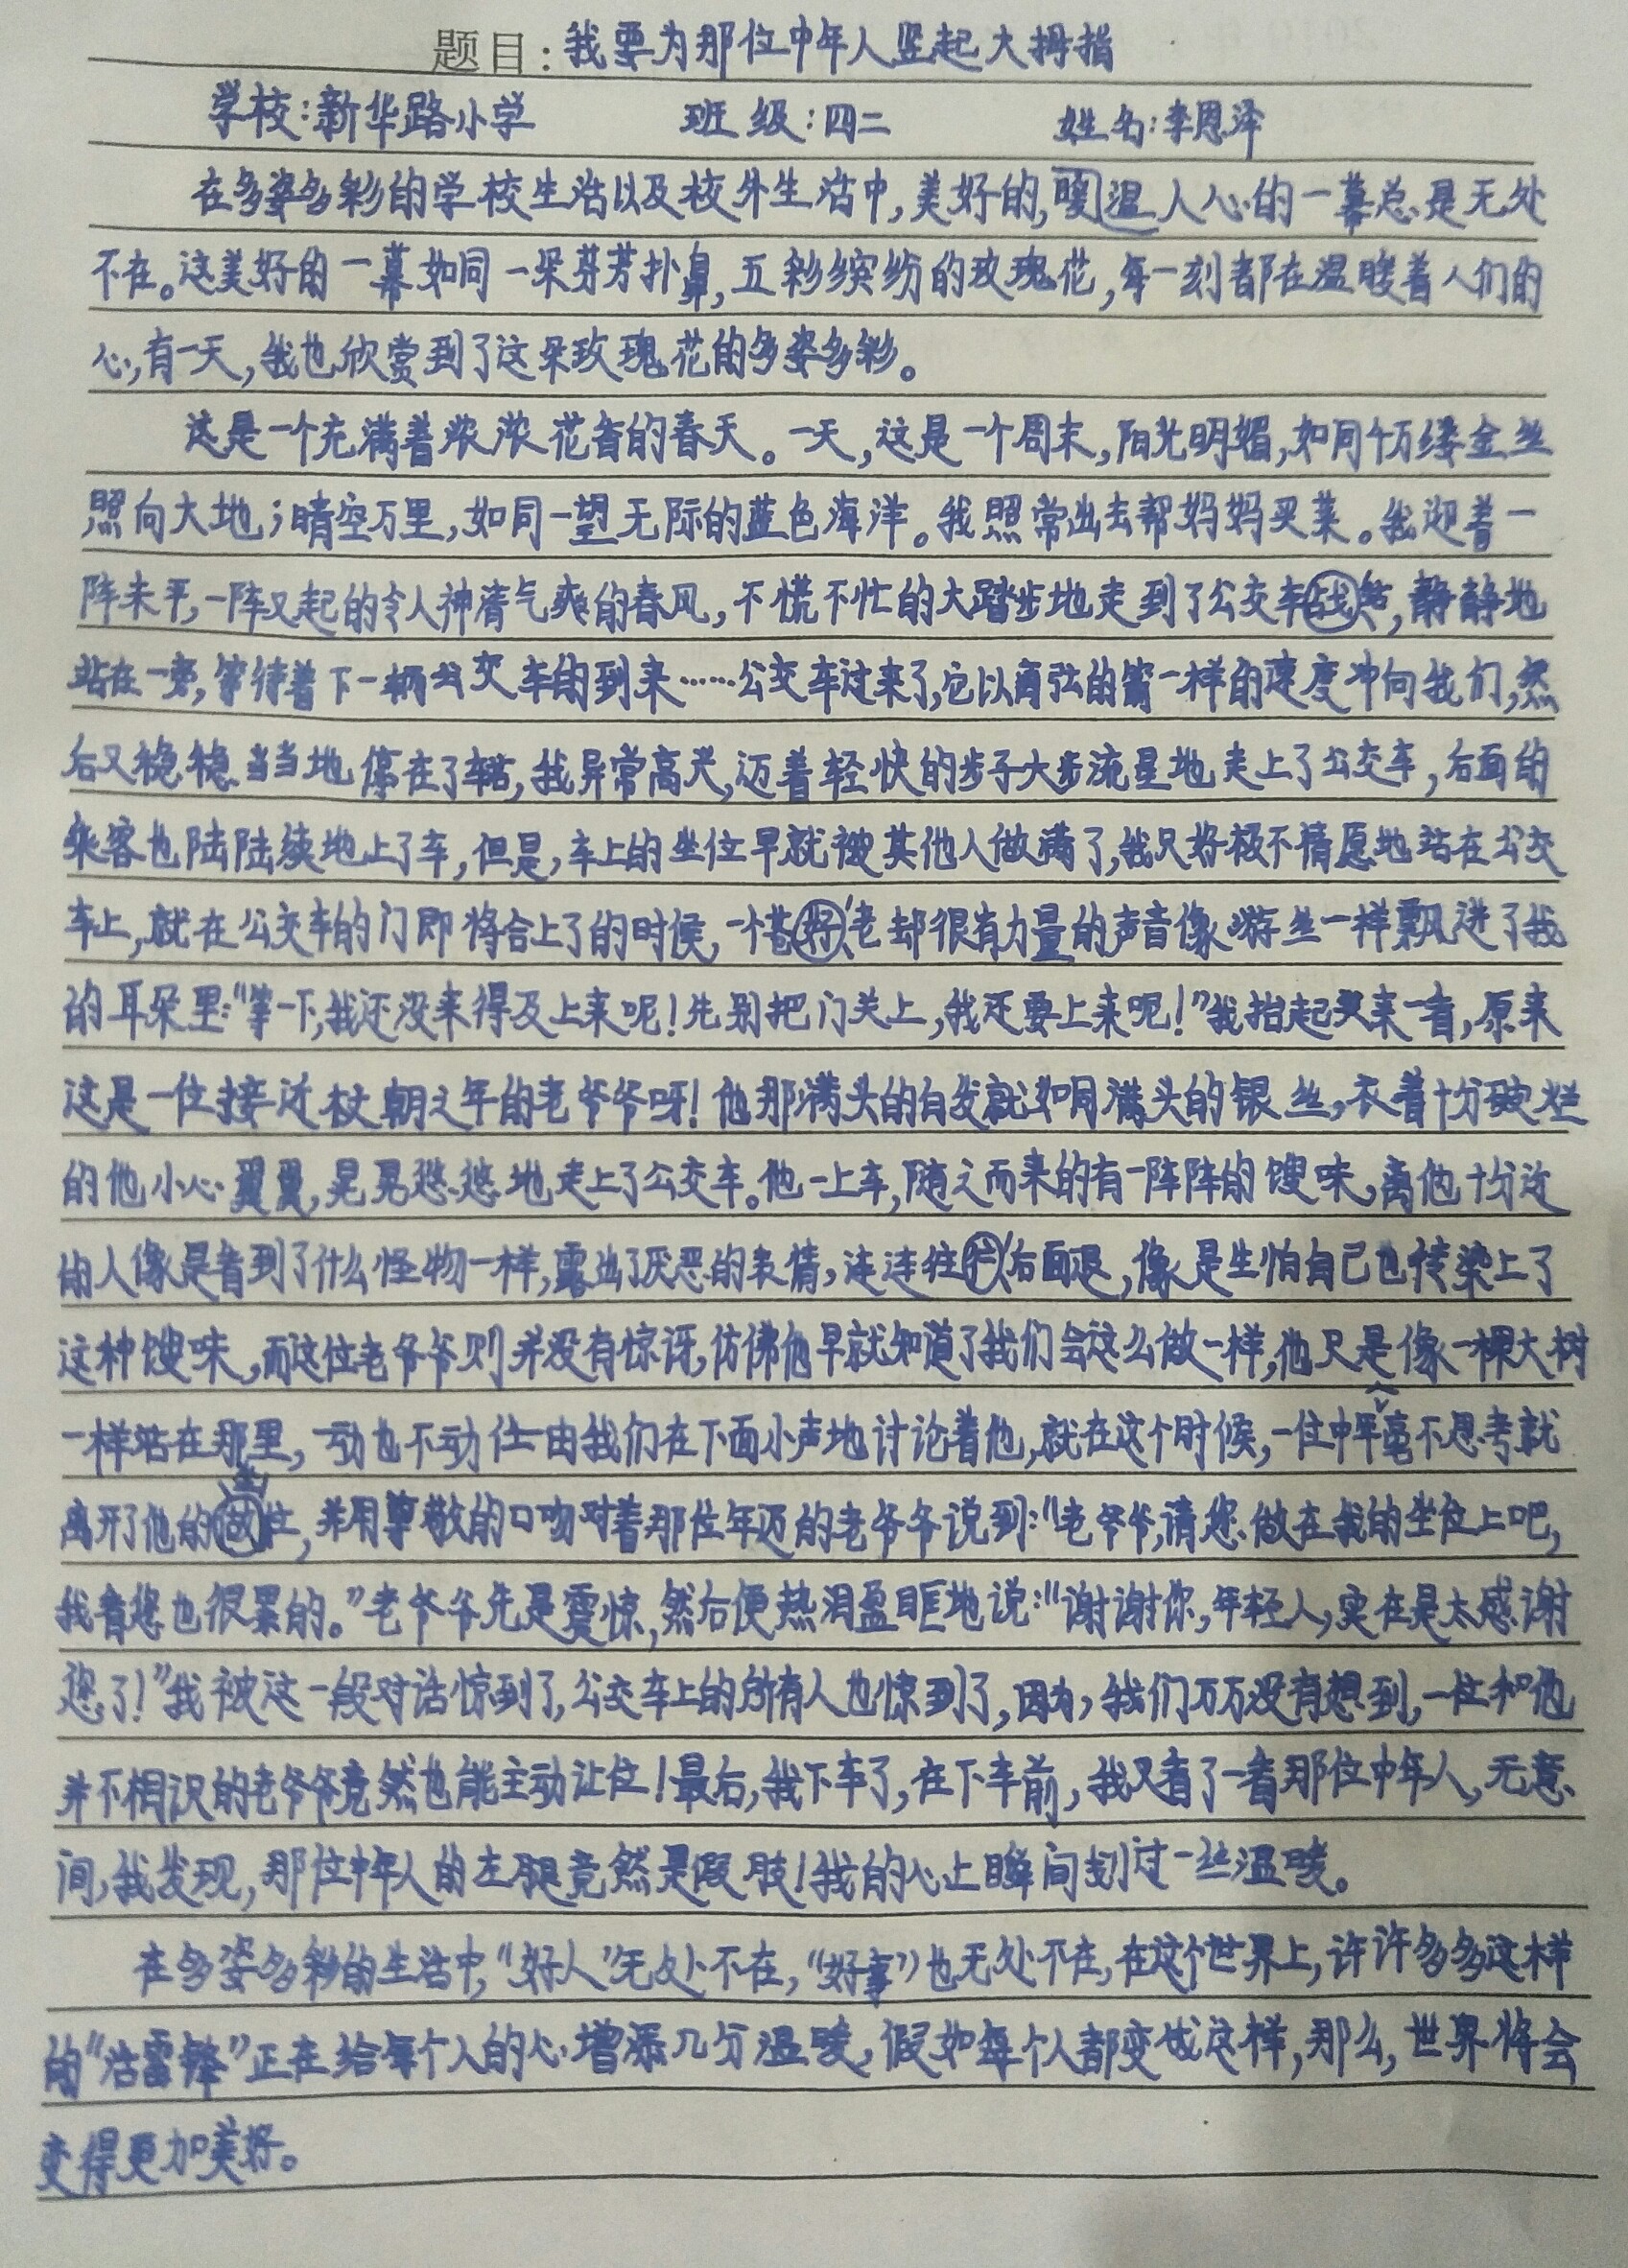 题目:我要为那位中年人竖起大拇指
学校:新华路小学 班级:四二 姓名:李恩泽
在多姿多彩的学校生活以及校外生活中,美好的,暖温人心的一幕总是无处
不在。这美好的一幕如同一朵芬芳扑鼻,五彩缤纷的玫瑰花,每一刻都在温暖着人们的
心,有一天,我也欣赏到了这朵玫瑰花的多姿多彩。
这是一个充满着浓浓花香的春天。一天,这是一个周末,阳光明媚,如同千万缕金丝
照向大地;晴空万里,如同一望无际的蓝色海洋。我照常出去帮妈妈买菜。我迎着一
阵未平,一阵又起的令人神清气爽的春风,不慌不忙的大踏步地走到了公交车站,静静地
站在一旁,等待着下一辆公交车的到来……公交车过来了,它以离弦的箭一样的速度冲向我们,然
后又稳稳当当地停在了车站,我异常高兴,迈着轻快的步子大步流星地走上了公交车,后面的
乘客也陆陆续地上了车,但是,车上的坐位早就被其他人做满了,我只好极不情愿地站在公交
车上,就在公交车的门即将合上了的时候,一个苍老却很有力量的声音像游丝一样飘进了我
的耳朵里:“等一下,我还没来得及上来呢!先别把门关上,我还要上来呢!”我抬起头来一看,原来
这是一位接近杖朝之年的老爷爷呀!他那满头的白发就如同满头的银丝,衣着十分破烂
的他小心翼翼,晃晃悠悠地走上了公交车。他一上车,随之而来的有一阵阵的馊味,离他十分近
的人像是看到了什么怪物一样,露出了厌恶的表情,连连往后面退,像是生怕自己也传染上了
这种馊味,而这位老爷爷则并没有惊讶,仿佛他早就知道了我们会这么做一样,他只是像一棵大树
一样站在那里,一动也不动任由我们在下面小声地讨论着他,就在这个时候,一位中年毫不思考就
离开了他的坐位,并用尊敬的口吻对着那位年迈的老爷爷说到:“老爷爷,请您做在我的坐位上吧,
我看您也很累的。”老爷爷先是震惊,然后便热泪盈眶地说:“谢谢你,年轻人,实在是太感谢
您了!”我被这一段对话惊到了,公交车上的所有人也惊到了,因为,我们万万没有想到,一位和他
并不相识的老爷爷竟然也能主动让位!最后,我下车了,在下车前,我又看了一看那位中年人,无意
间,我发现,那位中年人的左腿竟然是假肢!我的心上瞬间划过一丝温暖。
在多姿多彩的生活中,“好人”无处不在,“好事”也无处不在,在这个世界上,许许多多这样
的“活雷锋”正在给每个人的心增添几分温暖,假如每个人都变成这样,那么,世界将会
变得更加美好。